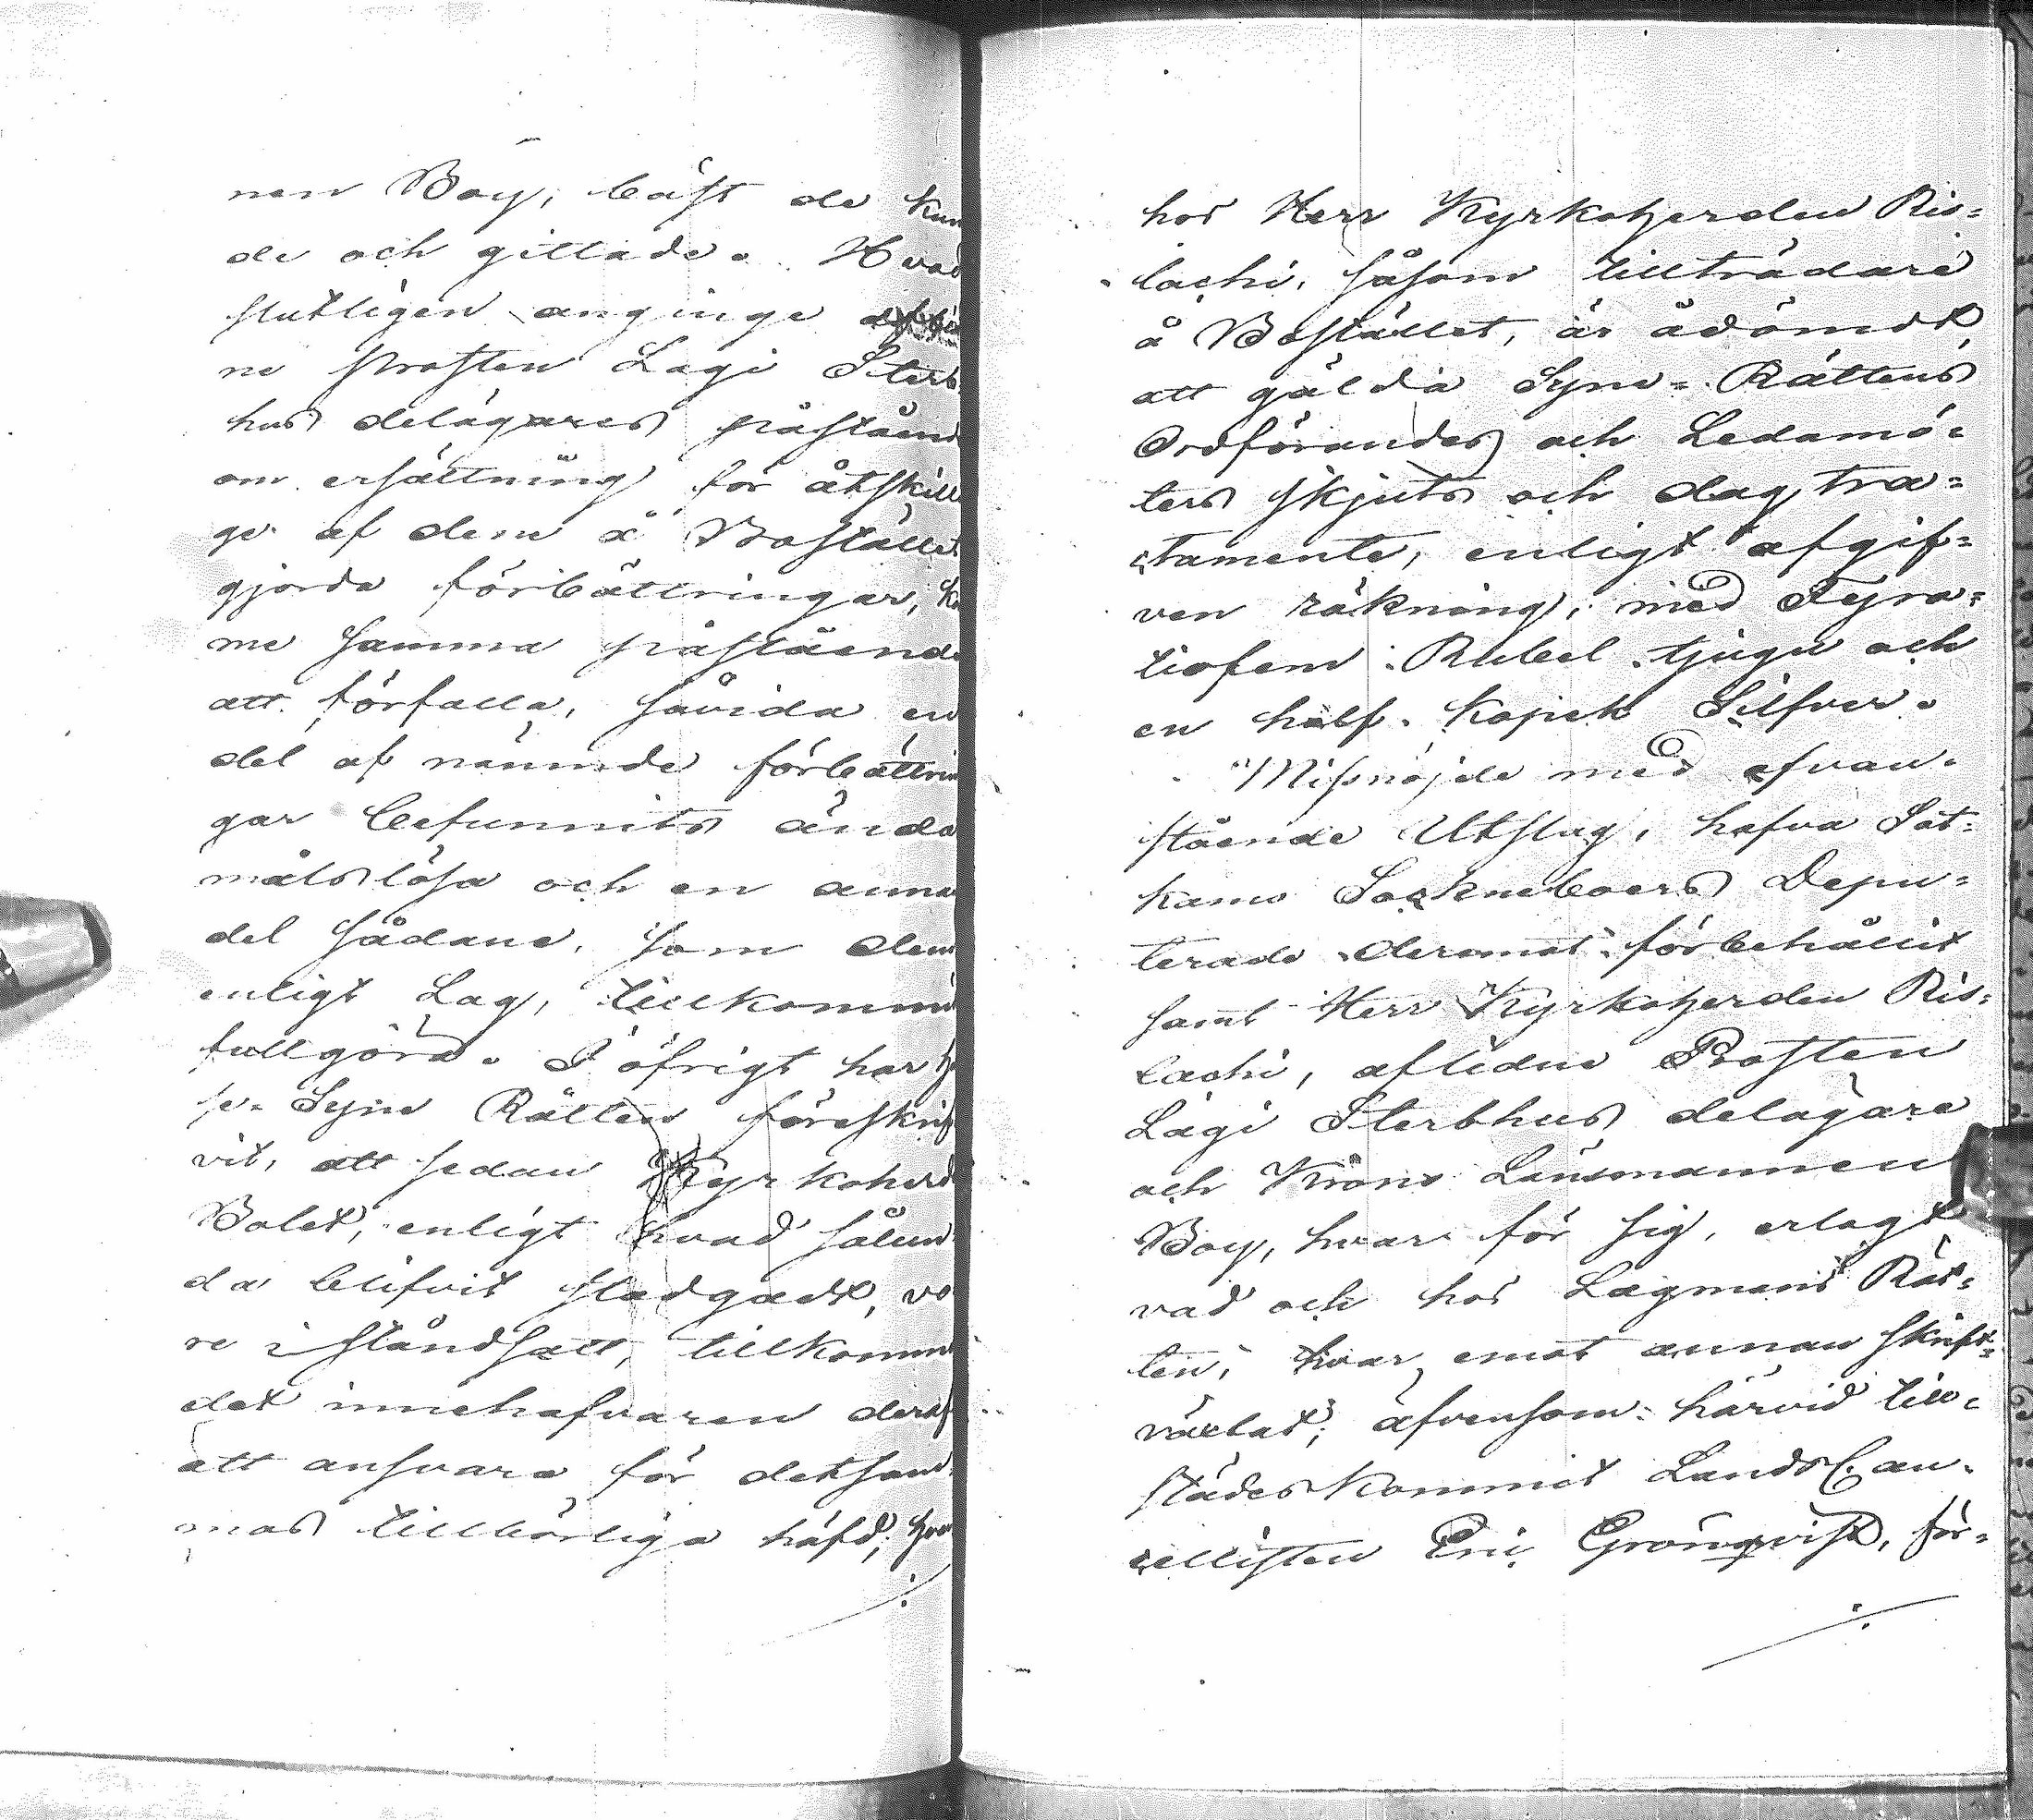 nen Boy, bäst de kun
de och gittade. Hvad
slutligen anginge
ne Prosten Lagi Sterb
hus delägares påståend
om ersättning för åtskilli
ge af dem å Bostället
gjorda förbättringar, ko
me samma påstående
att förfalla, såvida en
del af nämnde förbättrin
gar befunnits ända
målslösa och en anna
del sådane, som dem
enligt Lag, tillkommit
fullgöra. I öfrigt har H
se Syne Rätten föreskrif
vit, att sedan Kyrkoherd
Bolet, enligt hvad sålun
da blifvit stadgadt, vo
re iståndsatt, tillkomme
det innehafvaren deraf
att ansvara för detsam
mas tillbörliga häfd;
hos Herr Kyrkoherden Ris=
lachi, såsom tillträdare
å Bostället, är ådömdt
att gälda Syne=Rättens
Ordförandes och Ledamö=
ters skjuts och dagtra=
ctamente, enligt afgif=
ven räkning, med Fyra=
tiofem Rubel tjugu och
en half Kopek Silfver.
Missnöjde med ofvan=
stående Utslag, hafva Sot=
kamo Sockneboers Depu=
terade deremot förbehållit
samt Herr Kyrkoherden Ris=
lachi, aflidne Prosten
Lagi Sterbhus delägare
och Krono Länsmannen
Boy, hvar för sig, erlagt
vad och hos Lagmans Rät=
ten, hvar emot annan skrift=
växlat; äfvensom härvid till=
städeskommit LandsCan=
cellisten Eric Grönqvist, för=